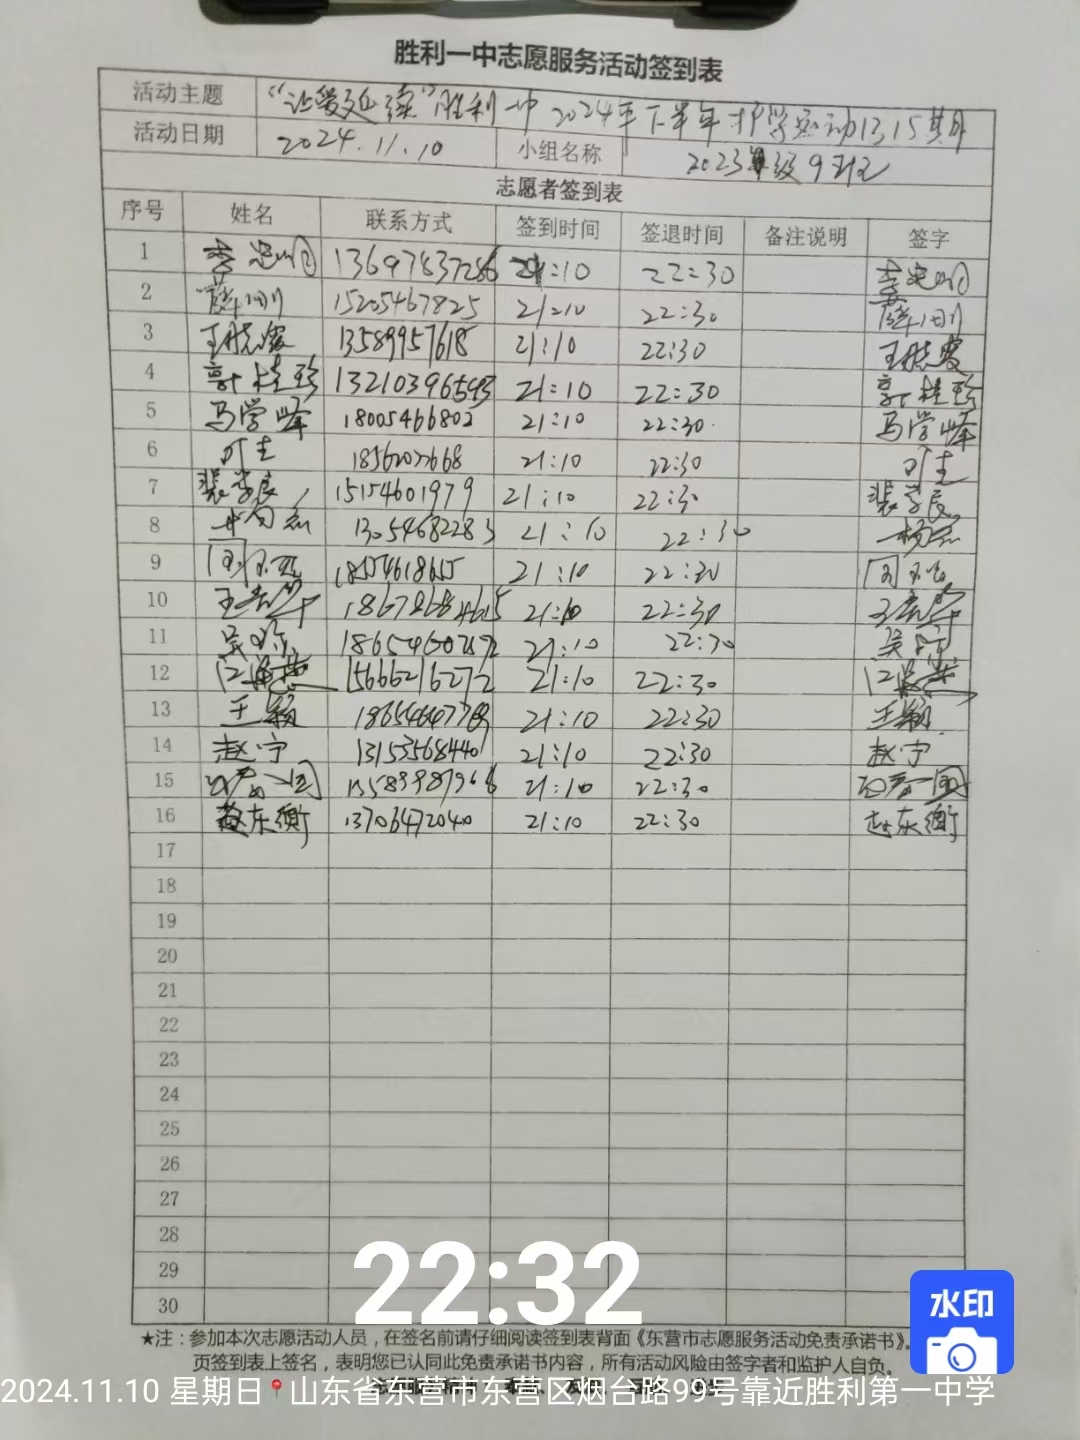 胜利一中志愿服务活动签到表
活动主题 “让爱延续”胜利一中2024年下半年护学活动13.15期
活动日期 2024.11.10 小组名称 2023级9班
志愿者签到表
序号 姓名 联系方式 签到时间 签退时间 备注说明 签字
1 13697837286 21:10 22:30
2 薛刚 15205467825 21:10 22:30 薛刚
3 王晓霞 13589957618 21:10 22:30 王晓霞
4 郭桂珍 13210396593 21:10 22:30 郭桂珍
5 马学峰 18005466802 21:10 22:30 马学峰
6 21:10 22:30
7 裴学良 15154601979 21:10 22:30 裴学良
8 13054682283 21:10 22:30
9 21:10 22:30
10 21:10 22:30
11 吴 21:10 22:30 吴
12 江海燕 15666216272 21:10 22:30 江海燕
13 王颖 21:10 22:30 王颖
14 赵宁 13153568440 21:10 22:30 赵宁
15 21:10 22:30
16 赵东衡 13706472040 21:10 22:30 赵东衡
17
18
19
20
21
22
23
24
25
26
27
28
29
30
22:32
水印
★注：参加本次志愿活动人员，在签名前请仔细阅读签到表背面《东营市志愿服务活动免责承诺书》。
页签到表上签名，表明您已认同此免责承诺书内容，所有活动风险由签字者和监护人自负。
2024.11.10 星期日 山东省东营市东营区烟台路99号靠近胜利第一中学